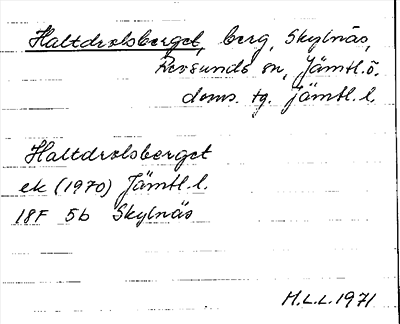 Haltdrolsberget, berg, Skylnäs,
Revsunds sn, Jämtl.ö.
doms. tg. Jämtl.l.
Haltdrolsberget
ek (1970) Jämtl.l.
18F 5b Skylnäs
M.L.L. 1971